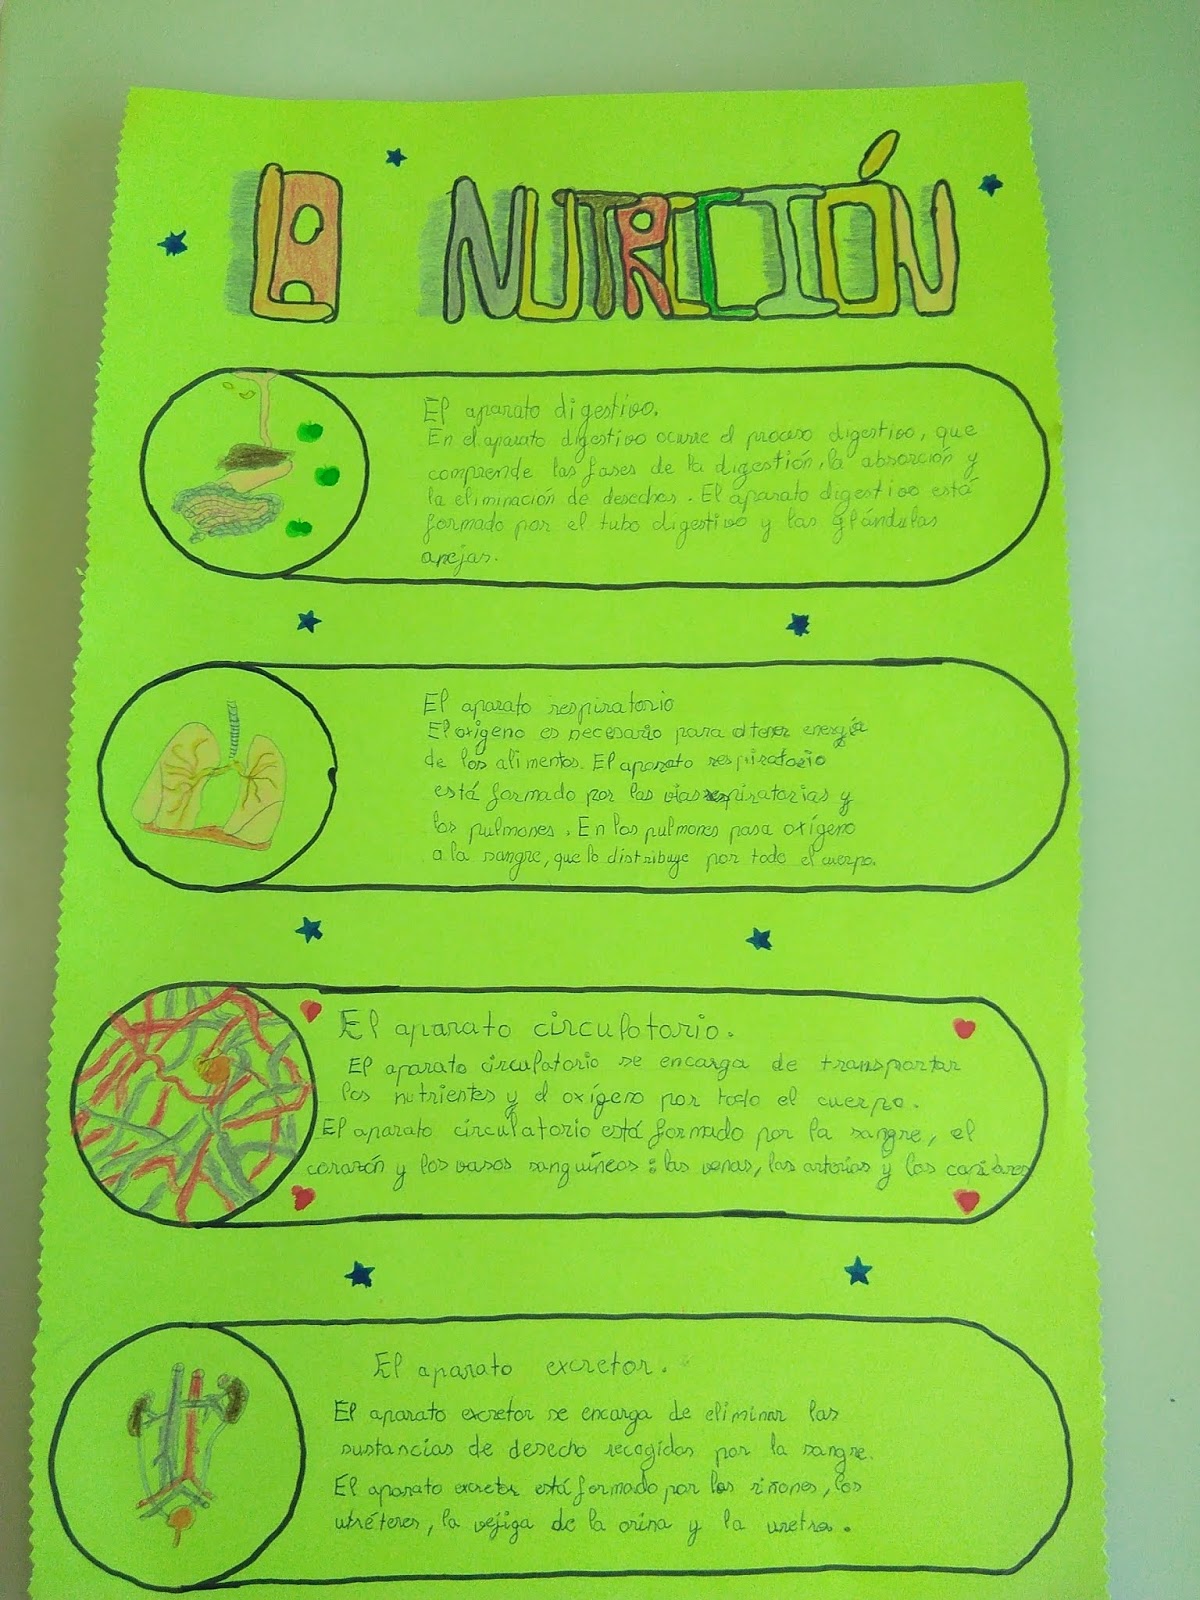 La NUTRICIÓN
El aparato digestivo.
En el aparato digestivo ocurre el proceso digestivo, que
comprende las fases de la digestión, la absorción y
la eliminación de desechos. El aparato digestivo está
formado por el tubo digestivo y las glándulas
anejas.
El aparato respiratorio
El oxígeno es necesario para obtener energía
de los alimentos. El aparato respiratorio
está formado por las vías respiratorias y
los pulmones. En los pulmones pasa oxígeno
a la sangre, que lo distribuye por todo el cuerpo.
El aparato circulatorio.
El aparato circulatorio se encarga de transportar
los nutrientes y el oxígeno por todo el cuerpo.
El aparato circulatorio está formado por la sangre, el
corazón y los vasos sanguíneos: las venas, las arterias y los capilares
El aparato excretor.
El aparato excretor se encarga de eliminar las
sustancias de desecho recogidas por la sangre.
El aparato excretor está formado por los riñones, los
uréteres, la vejiga de la orina y la uretra.